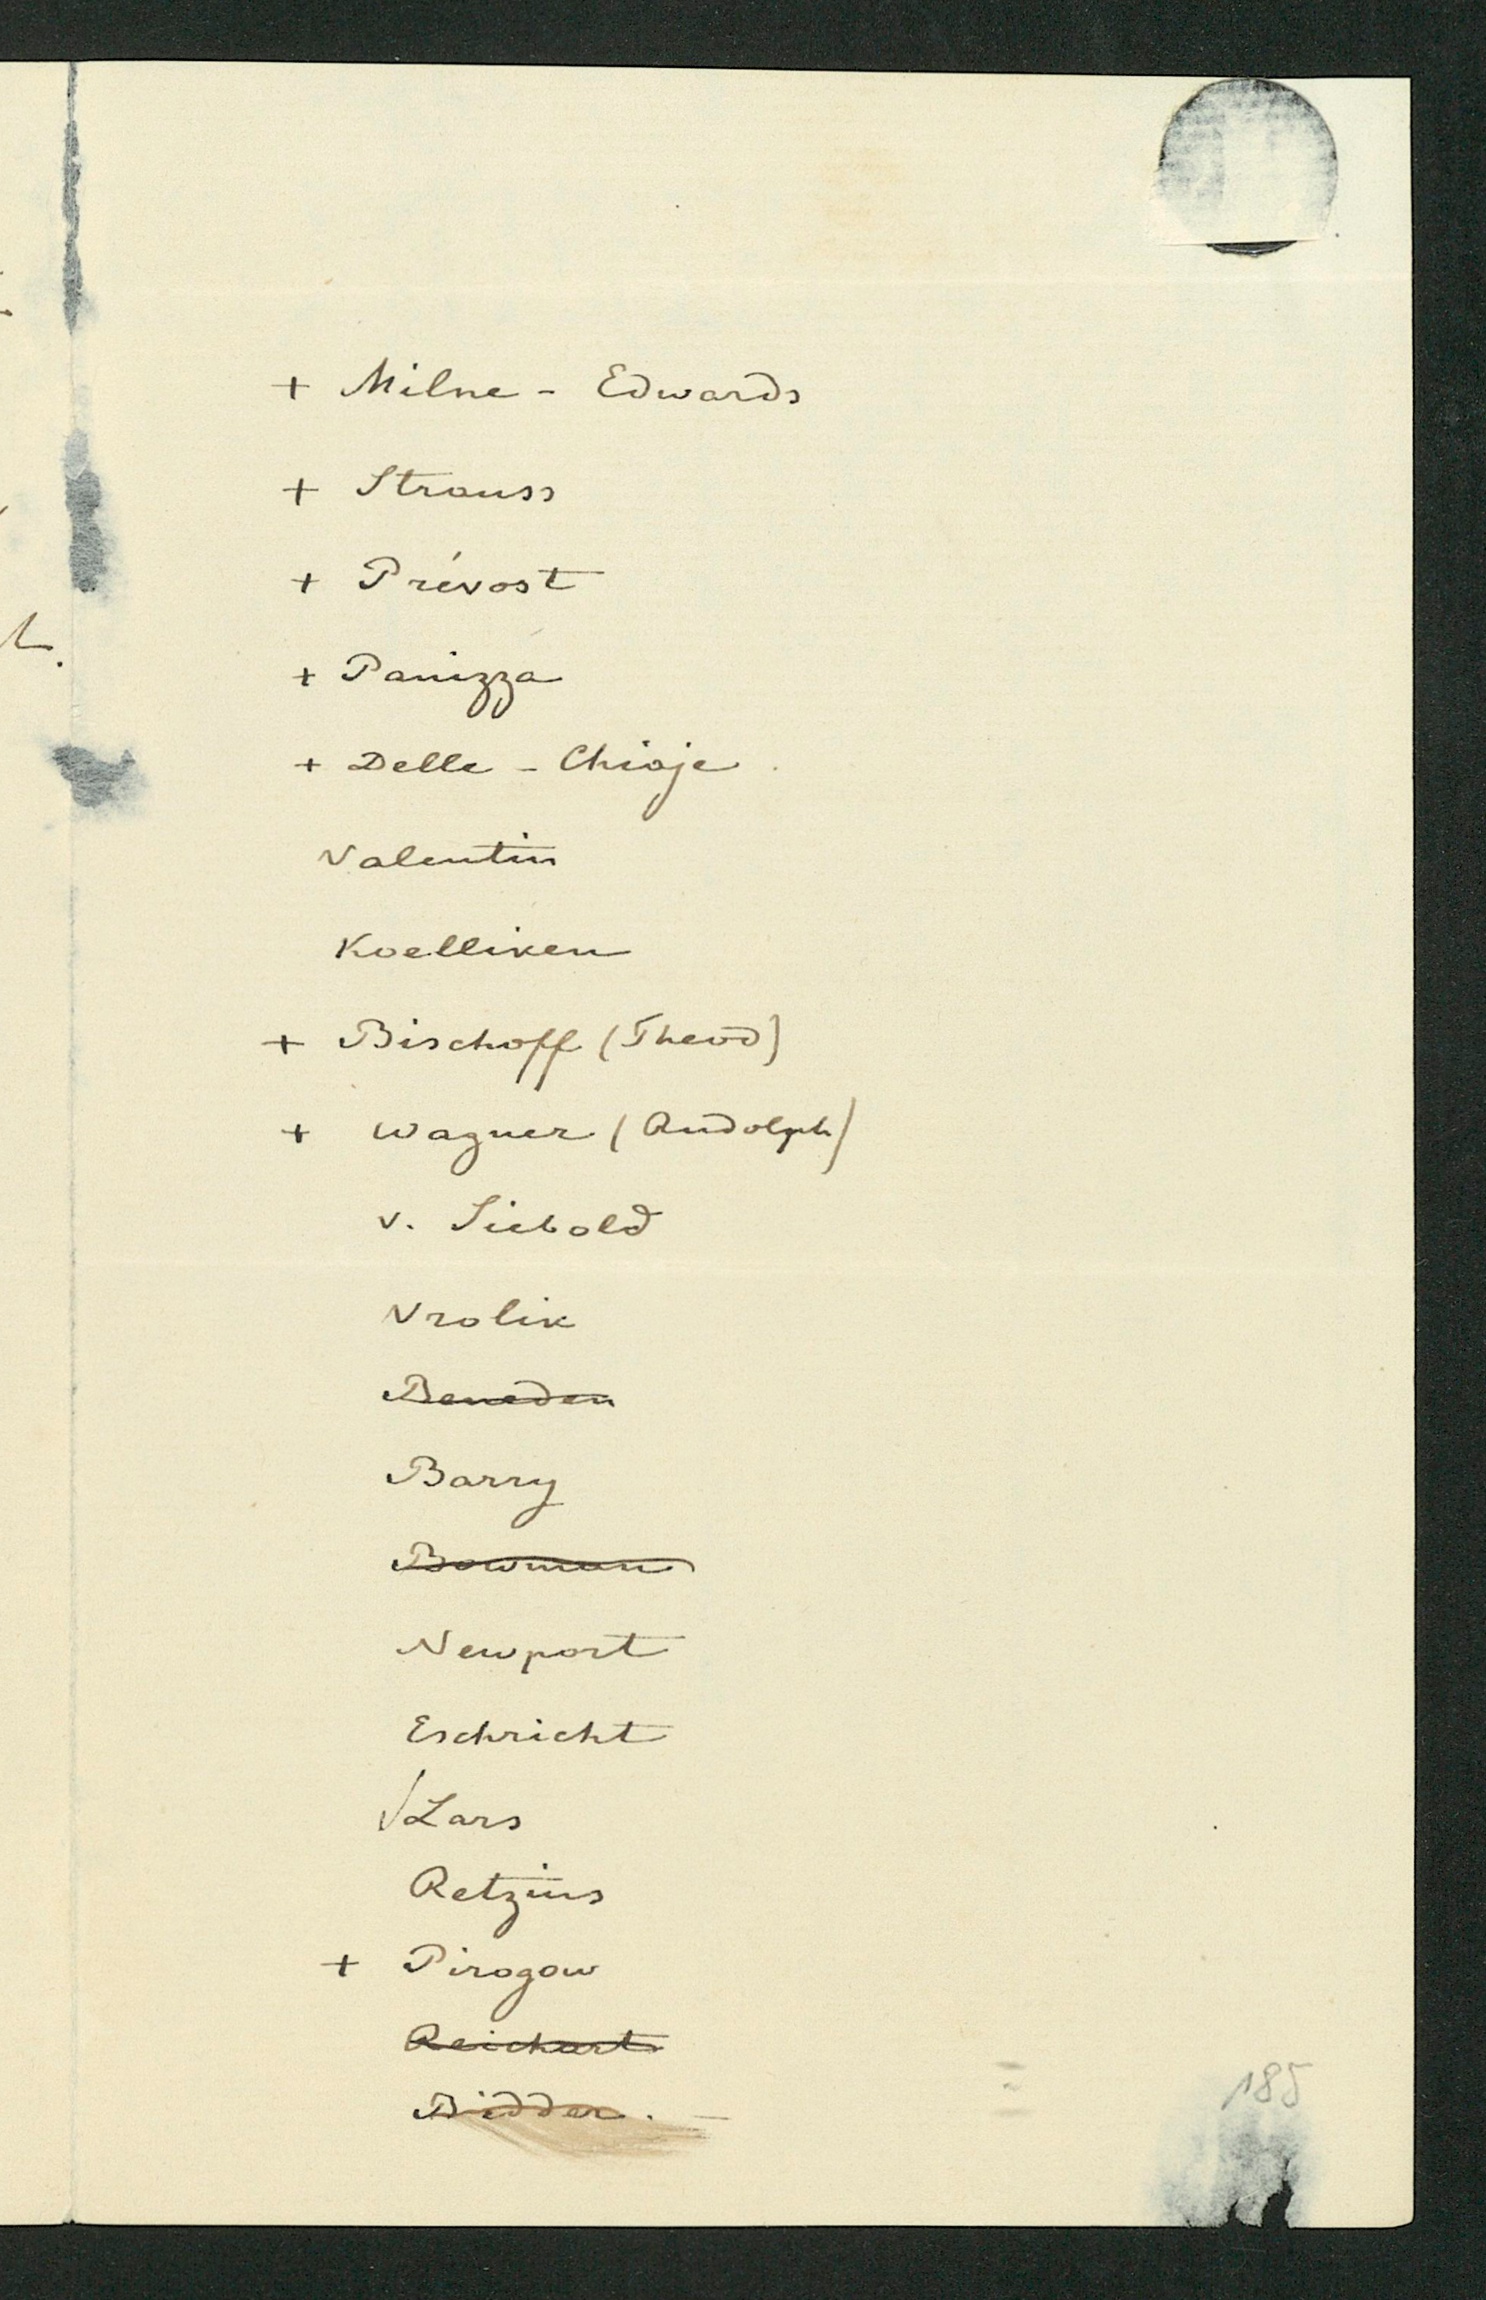 + Milne - Edwards
+ Strauss
+ Prévost
+ Panizza
+ Delle - Chiaje
Valentin
Koelliker
+ Bischoff (Theod)
+ Wagner (Rudolph)
v. Siebold
Vrolik
Beneden
Barry
Bowman
Newport
Eschricht
√ Sars
Retzius
+ Pirogow
Reichert
Bidder. -
185